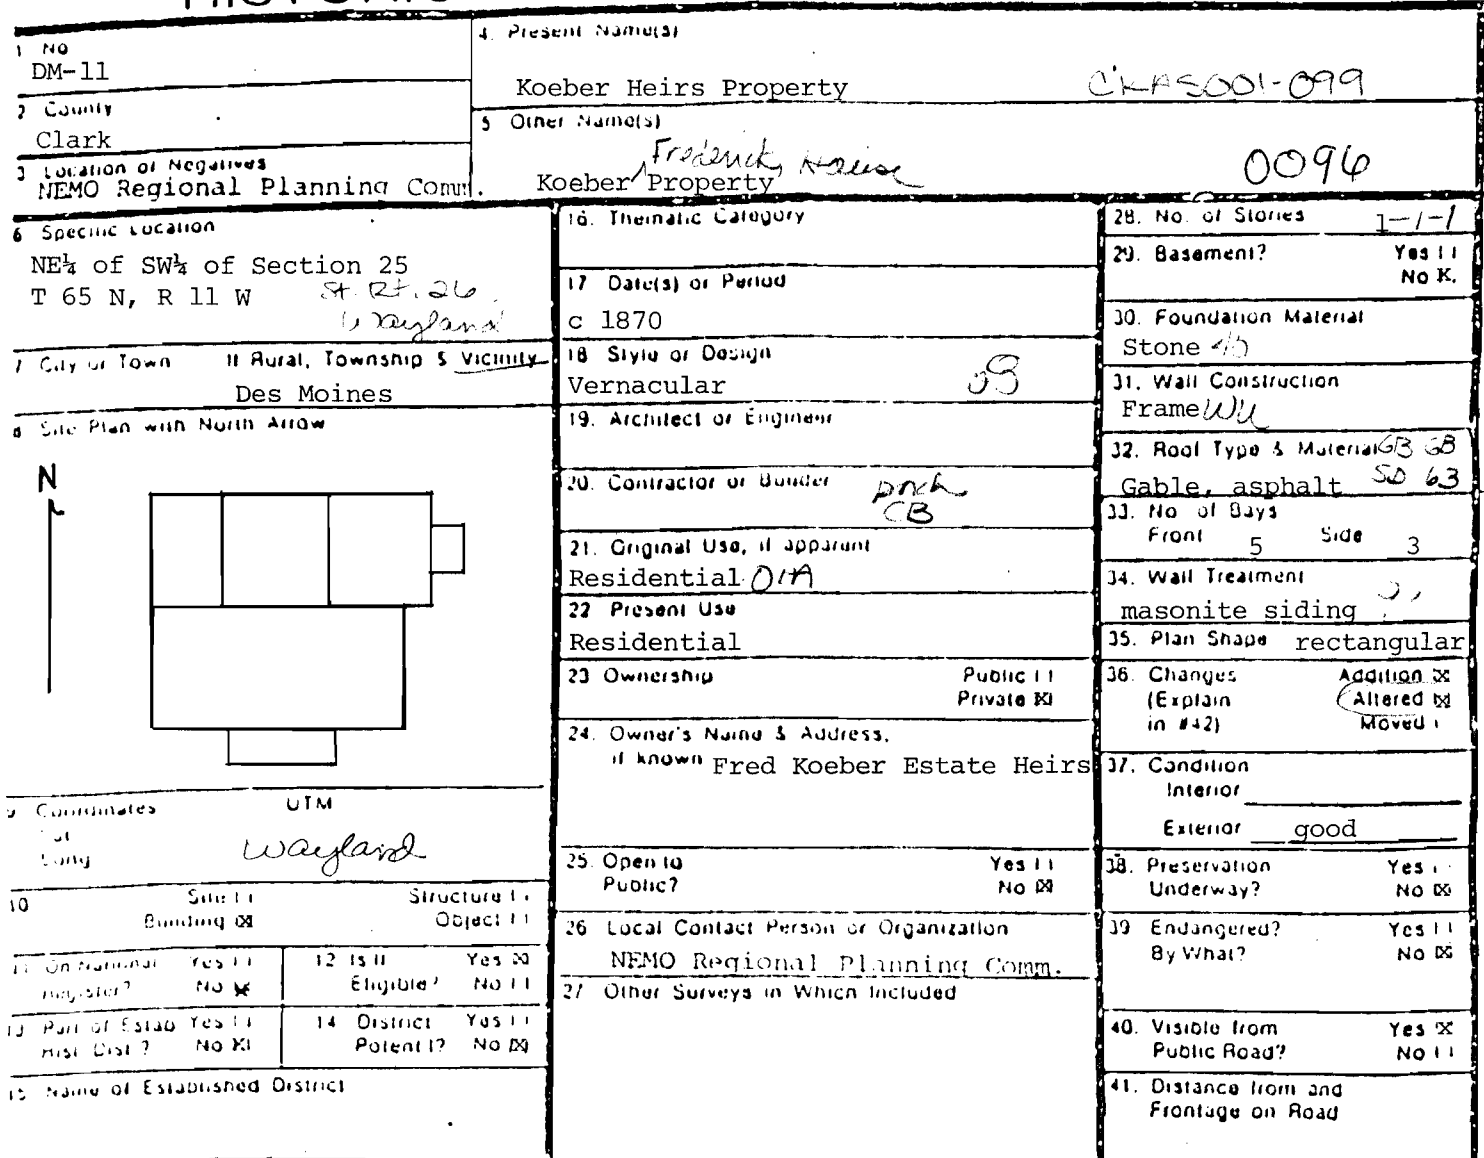 1 No
DM-11
2 County
Clark
3 Location of Negatives
NEMO Regional Planning Comm.
4. Present Name(s)
Koeber Heirs Property CKAS001-099
5 Other Name(s)
Frederick, House
Koeber Property
0096
6 Specific Location
NE¼ of SW¼ of Section 25
T 65 N, R 11 W St. Rt. 26
Wayland
7 City or Town If Rural, Township & Vicinity
Des Moines
8 Site Plan with North Arrow
N
9 Coordinates UTM
Lat
Long
Wayland
10 Site [ ] Structure [ ]
Building [X] Object [ ]
11 On National Register? Yes [ ] No [X]
12 Is It Eligible? Yes [X] No [ ]
13 Part of Estab Hist. Dist.? Yes [ ] No [X]
14 District Potent'l? Yes [ ] No [X]
15 Name of Established District
16. Thematic Category
17 Date(s) or Period
c 1870
18 Style or Design
Vernacular
19. Architect or Engineer
20. Contractor or Builder
porch
CB
21. Original Use, if apparent
Residential 01A
22 Present Use
Residential
23 Ownership Public [ ]
Private [X]
24. Owner's Name & Address,
if known Fred Koeber Estate Heirs
25. Open to Yes [ ]
Public? No [X]
26 Local Contact Person or Organization
NEMO Regional Planning Comm.
27 Other Surveys in Which Included
28. No. of Stories 1-1-1
29. Basement? Yes [ ]
No X.
30. Foundation Material
Stone 40
31. Wall Construction
Frame
32. Roof Type & Material GB GB
Gable, asphalt SD 63
33. No. of Bays
Front 5 Side 3
34. Wall Treatment
masonite siding
35. Plan Shape rectangular
36. Changes Addition [X]
(Explain Altered [X]
in #42) Moved [ ]
37. Condition
Interior
Exterior good
38. Preservation Yes [ ]
Underway? No [X]
39 Endangered? Yes [ ]
By What? No [X]
40. Visible from Yes [X]
Public Road? No [ ]
41. Distance from and
Frontage on Road